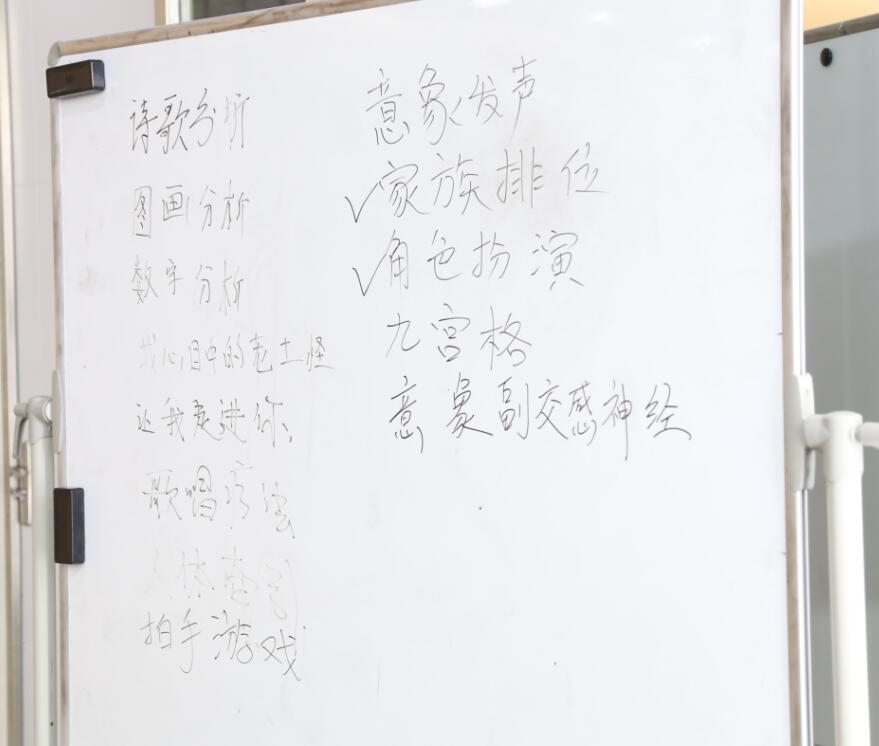 诗歌分析
图画分析
数字分析
我心目中的老土怪
让我走进你
歌唱疗法
人体牵引
拍手游戏
意象发声
✓家族排位
✓角色扮演
九宫格
意象副交感神经